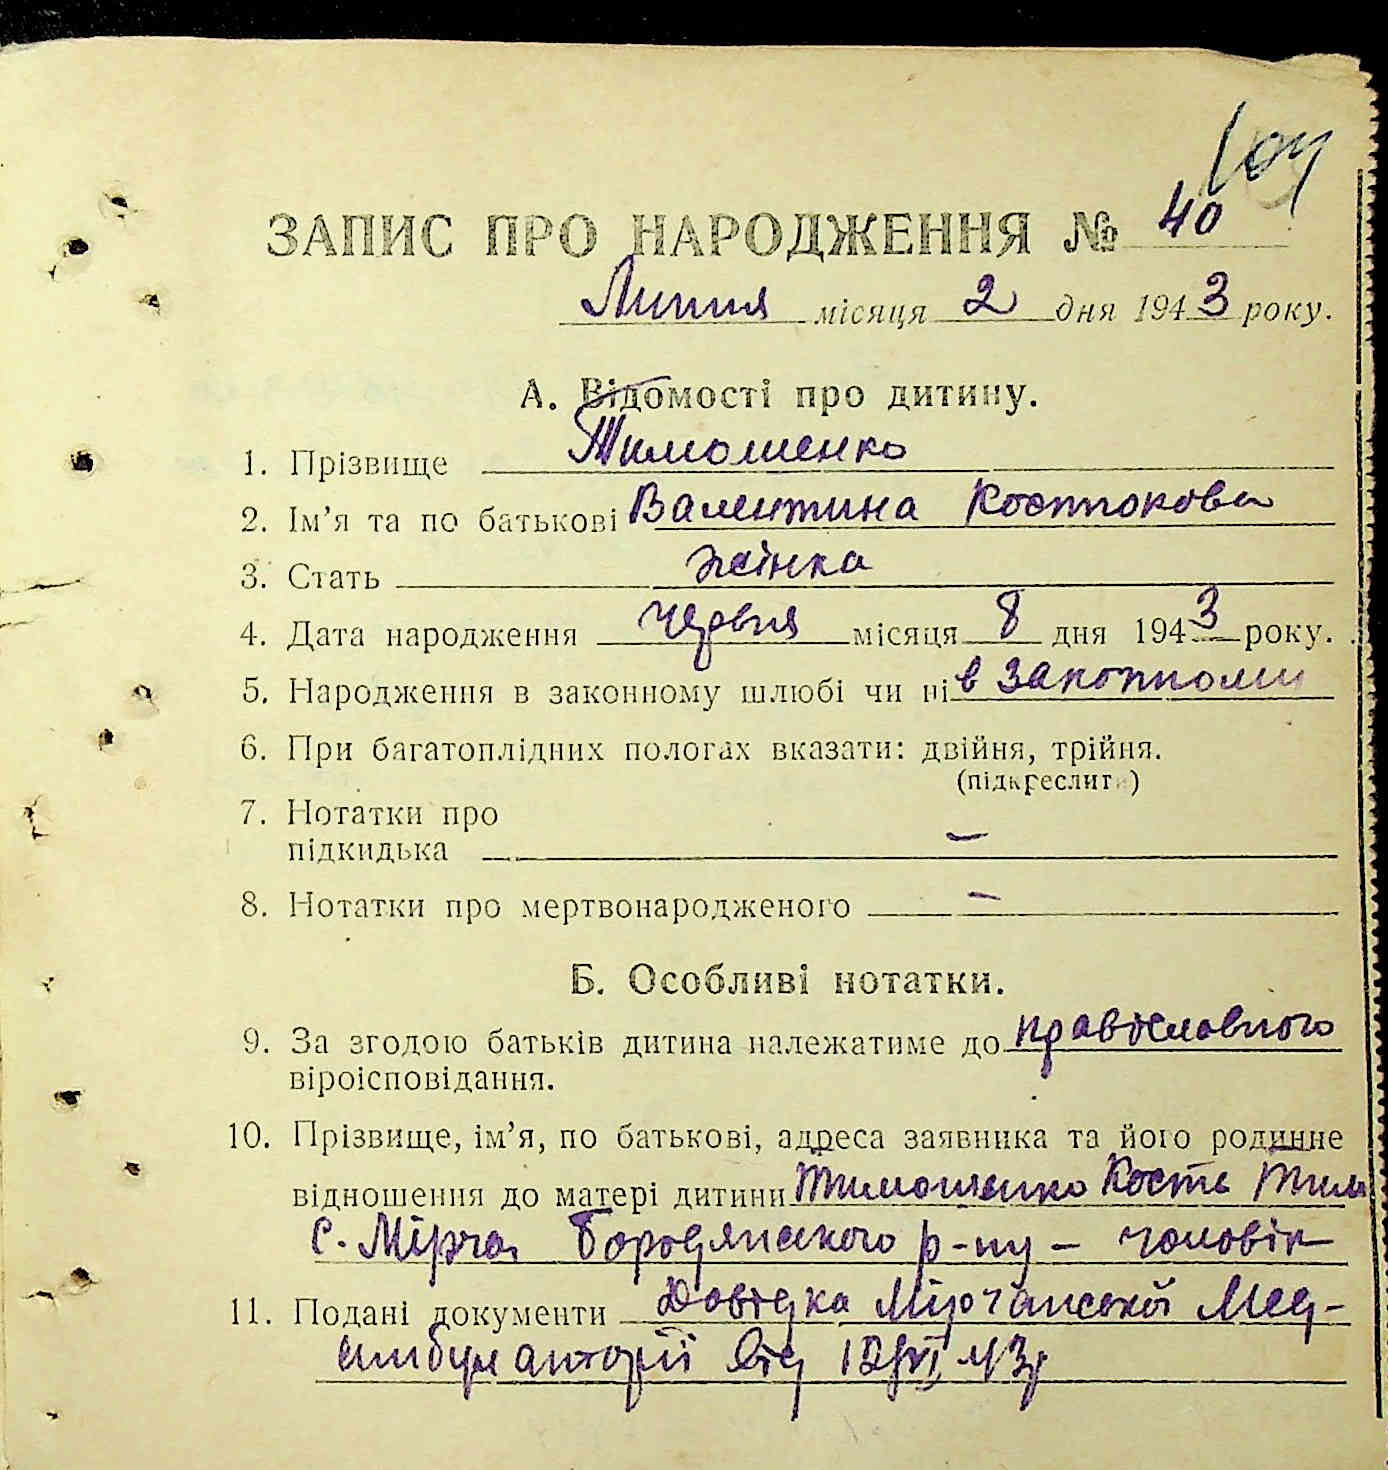 104
ЗАПИС ПРО НАРОДЖЕННЯ № 40
Липня місяця 2 дня 1943 року.
А. Відомості про дитину.
1. Прізвище Тимошенко
2. Ім’я та по батькові Валентина Костюкова
3. Стать жінка
4. Дата народження червня місяця 8 дня 1943 року.
5. Народження в законному шлюбі чи ні в законному
6. При багатоплідних пологах вказати: двійня, трійня.
(підкреслити)
7. Нотатки про
підкидька —
8. Нотатки про мертвонародженого —
Б. Особливі нотатки.
9. За згодою батьків дитина належатиме до православного
віроісповідання.
10. Прізвище, ім’я, по батькові, адреса заявника та його родинне
відношення до матері дитини Тимошенко Кость Тим
с. Мірча Бородянського р-ну – чоловік
11. Подані документи Довідка Мірчанської Мед-
амбулаторії від 12/VI 43р